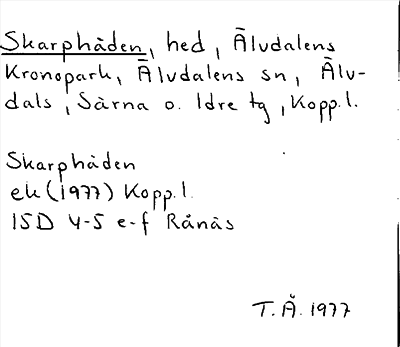 Skarphåden, hed, Älvdalens
Kronopark, Älvdalens sn, Älv-
dals, Särna o. Idre tg, Kopp.l.
Skarphåden
ek (1977) Kopp.l.
15D 4-5 e-f Rånäs
T.Å. 1977